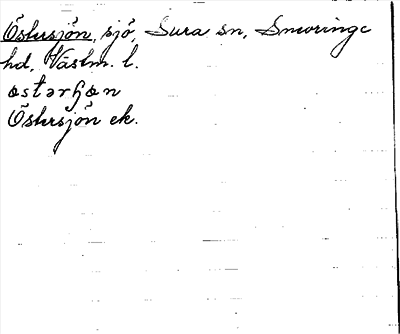 Östersjön, sjö, Sura sn, Snevringe
hd, Västm. l.
östərɧön
Östersjön ek.